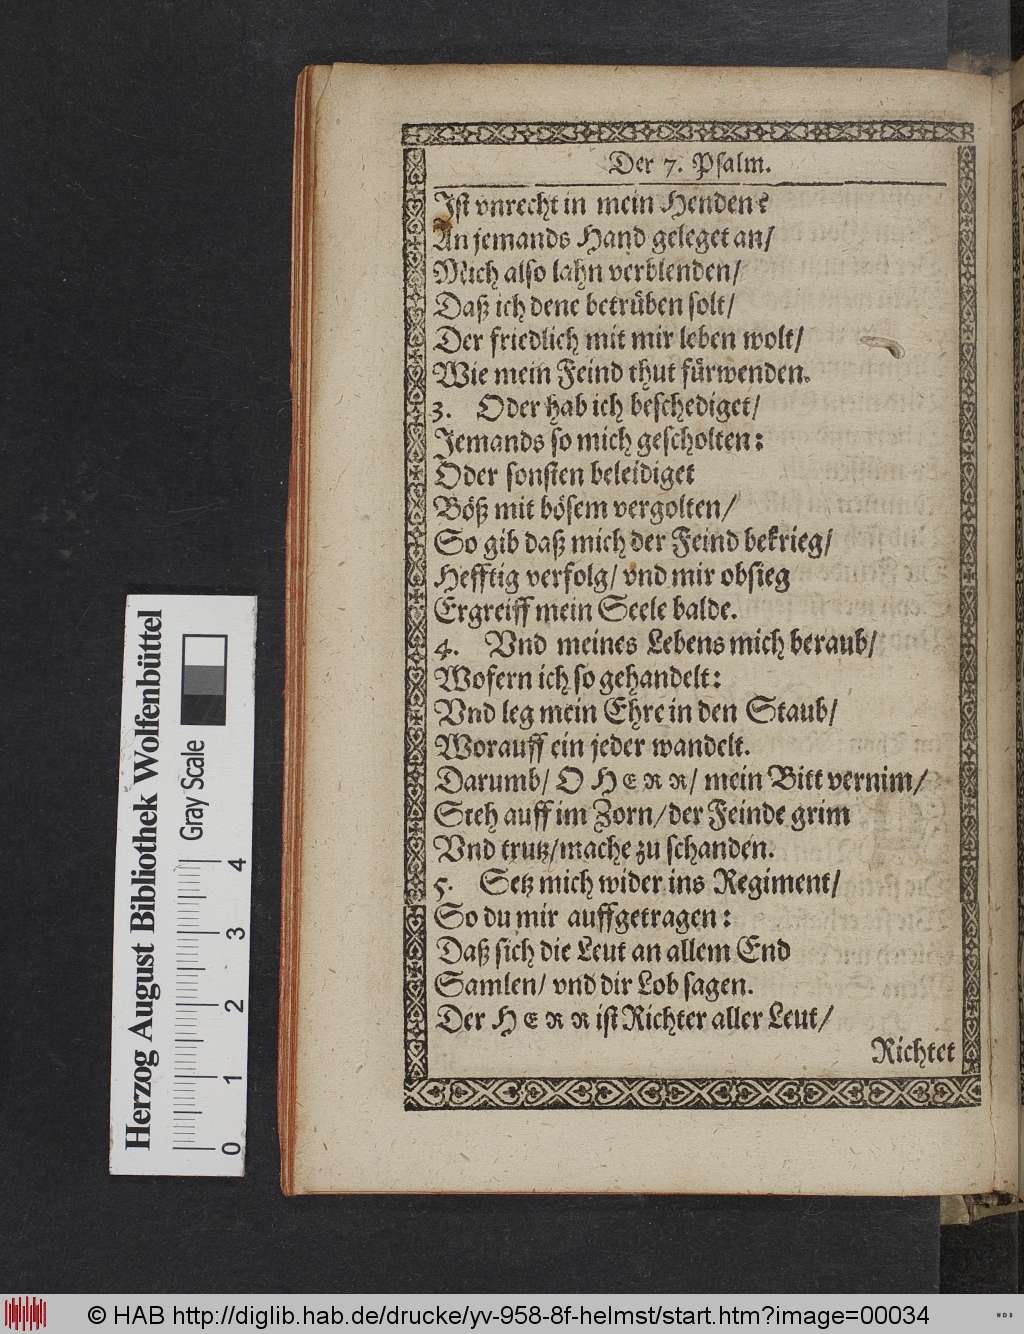 Der 7. Psalm.
Ist vnrecht in mein Henden?
An jemands Hand geleget an/
Mich also lahn verblenden/
Daß ich dene betrüben solt/
Der friedlich mit mir leben wolt/
Wie mein Feind thut fürwenden.
3. Oder hab ich beschediget/
Jemands so mich gescholten:
Oder sonsten beleidiget
Böß mit bösem vergolten/
So gib daß mich der Feind bekrieg/
Hefftig verfolg/ vnd mir obsieg
Ergreiff mein Seele balde.
4. Vnd meines Lebens mich beraub/
Wofern ich so gehandelt:
Vnd leg mein Ehre in den Staub/
Worauff ein jeder wandelt.
Darumb/ O HERR/ mein Bitt vernim/
Steh auff im Zorn/ der Feinde grim
Vnd trutz/ mache zu schanden.
5. Setz mich wider ins Regiment/
So du mir auffgetragen:
Daß sich die Leut an allem End
Samlen/ vnd dir Lob sagen.
Der HERR ist Richter aller Leut/
Richtet
Herzog August Bibliothek Wolfenbüttel
Gray Scale
0 1 2 3 4
© HAB http://diglib.hab.de/drucke/yv-958-8f-helmst/start.htm?image=00034